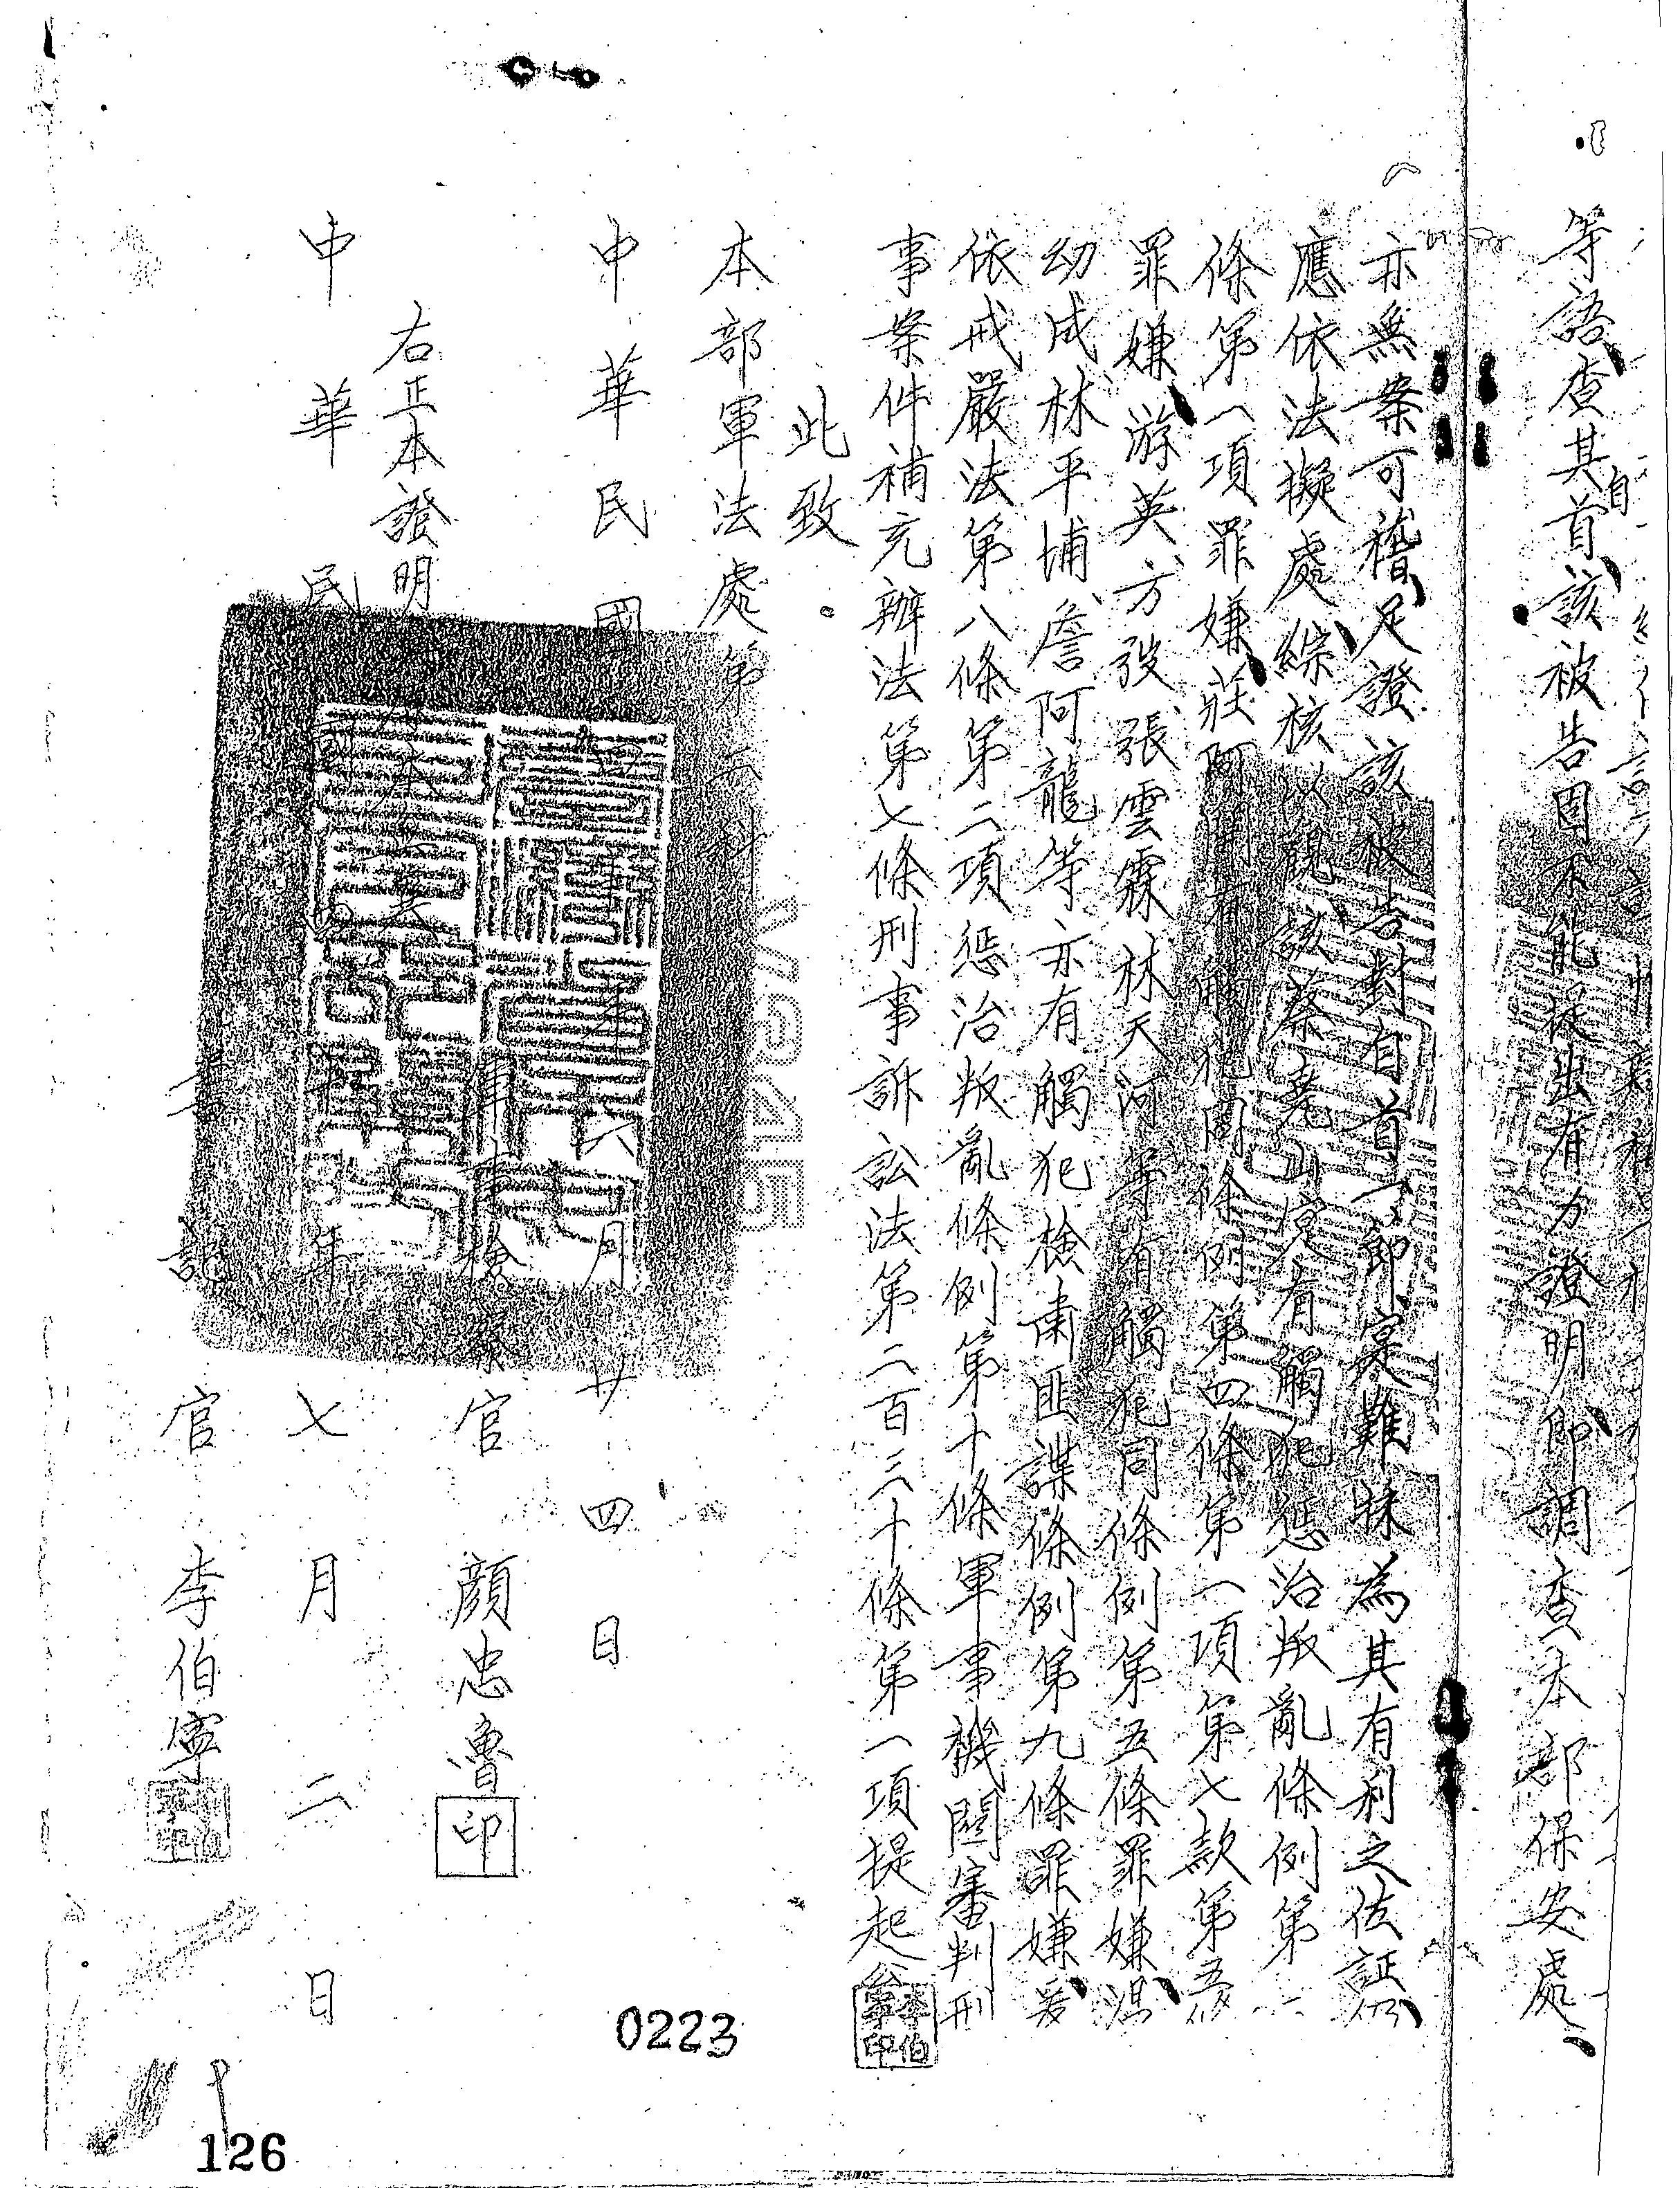 等語查其自首該被告固不能提出有力證明即調查本部保安處
亦無案可稽足證該被告對自首一節寔難採為其有利之佐証仍
應依法擬處綜核以觀該蔡堯山寔有觸犯懲治叛亂條例第二
條第一項罪嫌莊阿開有觸犯同條例第四條第一項第七款第五條
罪嫌游英方發張雲霖林天河等有觸犯同條例第五條罪嫌温
幼成林平埔詹阿龍等亦有觸犯檢肅匪諜條例第九條罪嫌爰
依戒嚴法第八條第二項懲治叛亂條例第十條軍事機關審判刑
事案件補充辦法第七條刑事訴訟法第二百三十條第一項提起公
此致
本部軍法處第 科
中華民國 年六月廿四日
軍事檢察官 顏忠魯 印
右正本證明
中華民國 年七月二日
書記官 李伯寧
0223
126